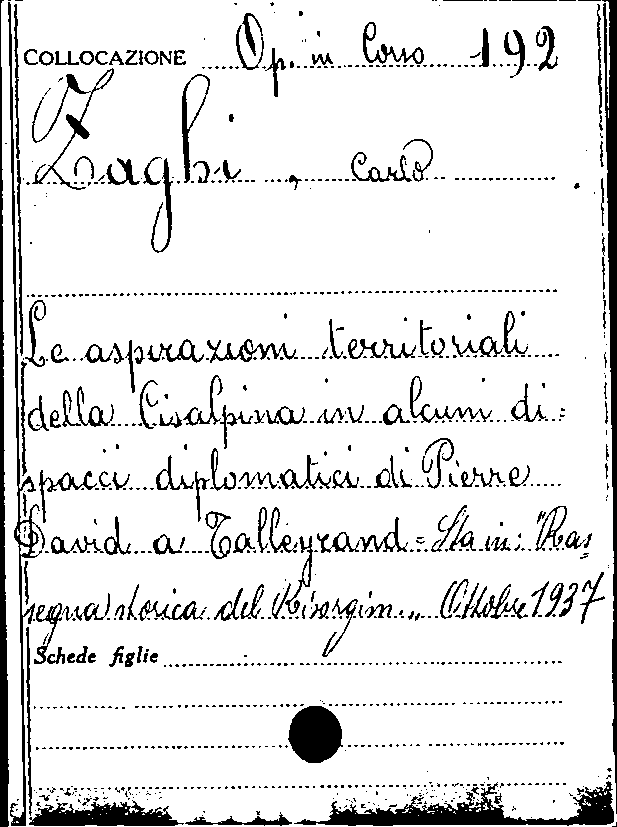 COLLOCAZIONE Op. in Corso 192
Zaghi, Carlo
Le aspirazioni territoriali
della Cisalpina in alcuni di=
spacci diplomatici di Pierre
David a Talleyrand = Sta in: "Ras=
segna storica del Risorgim.„ Ottobre 1937
Schede figlie